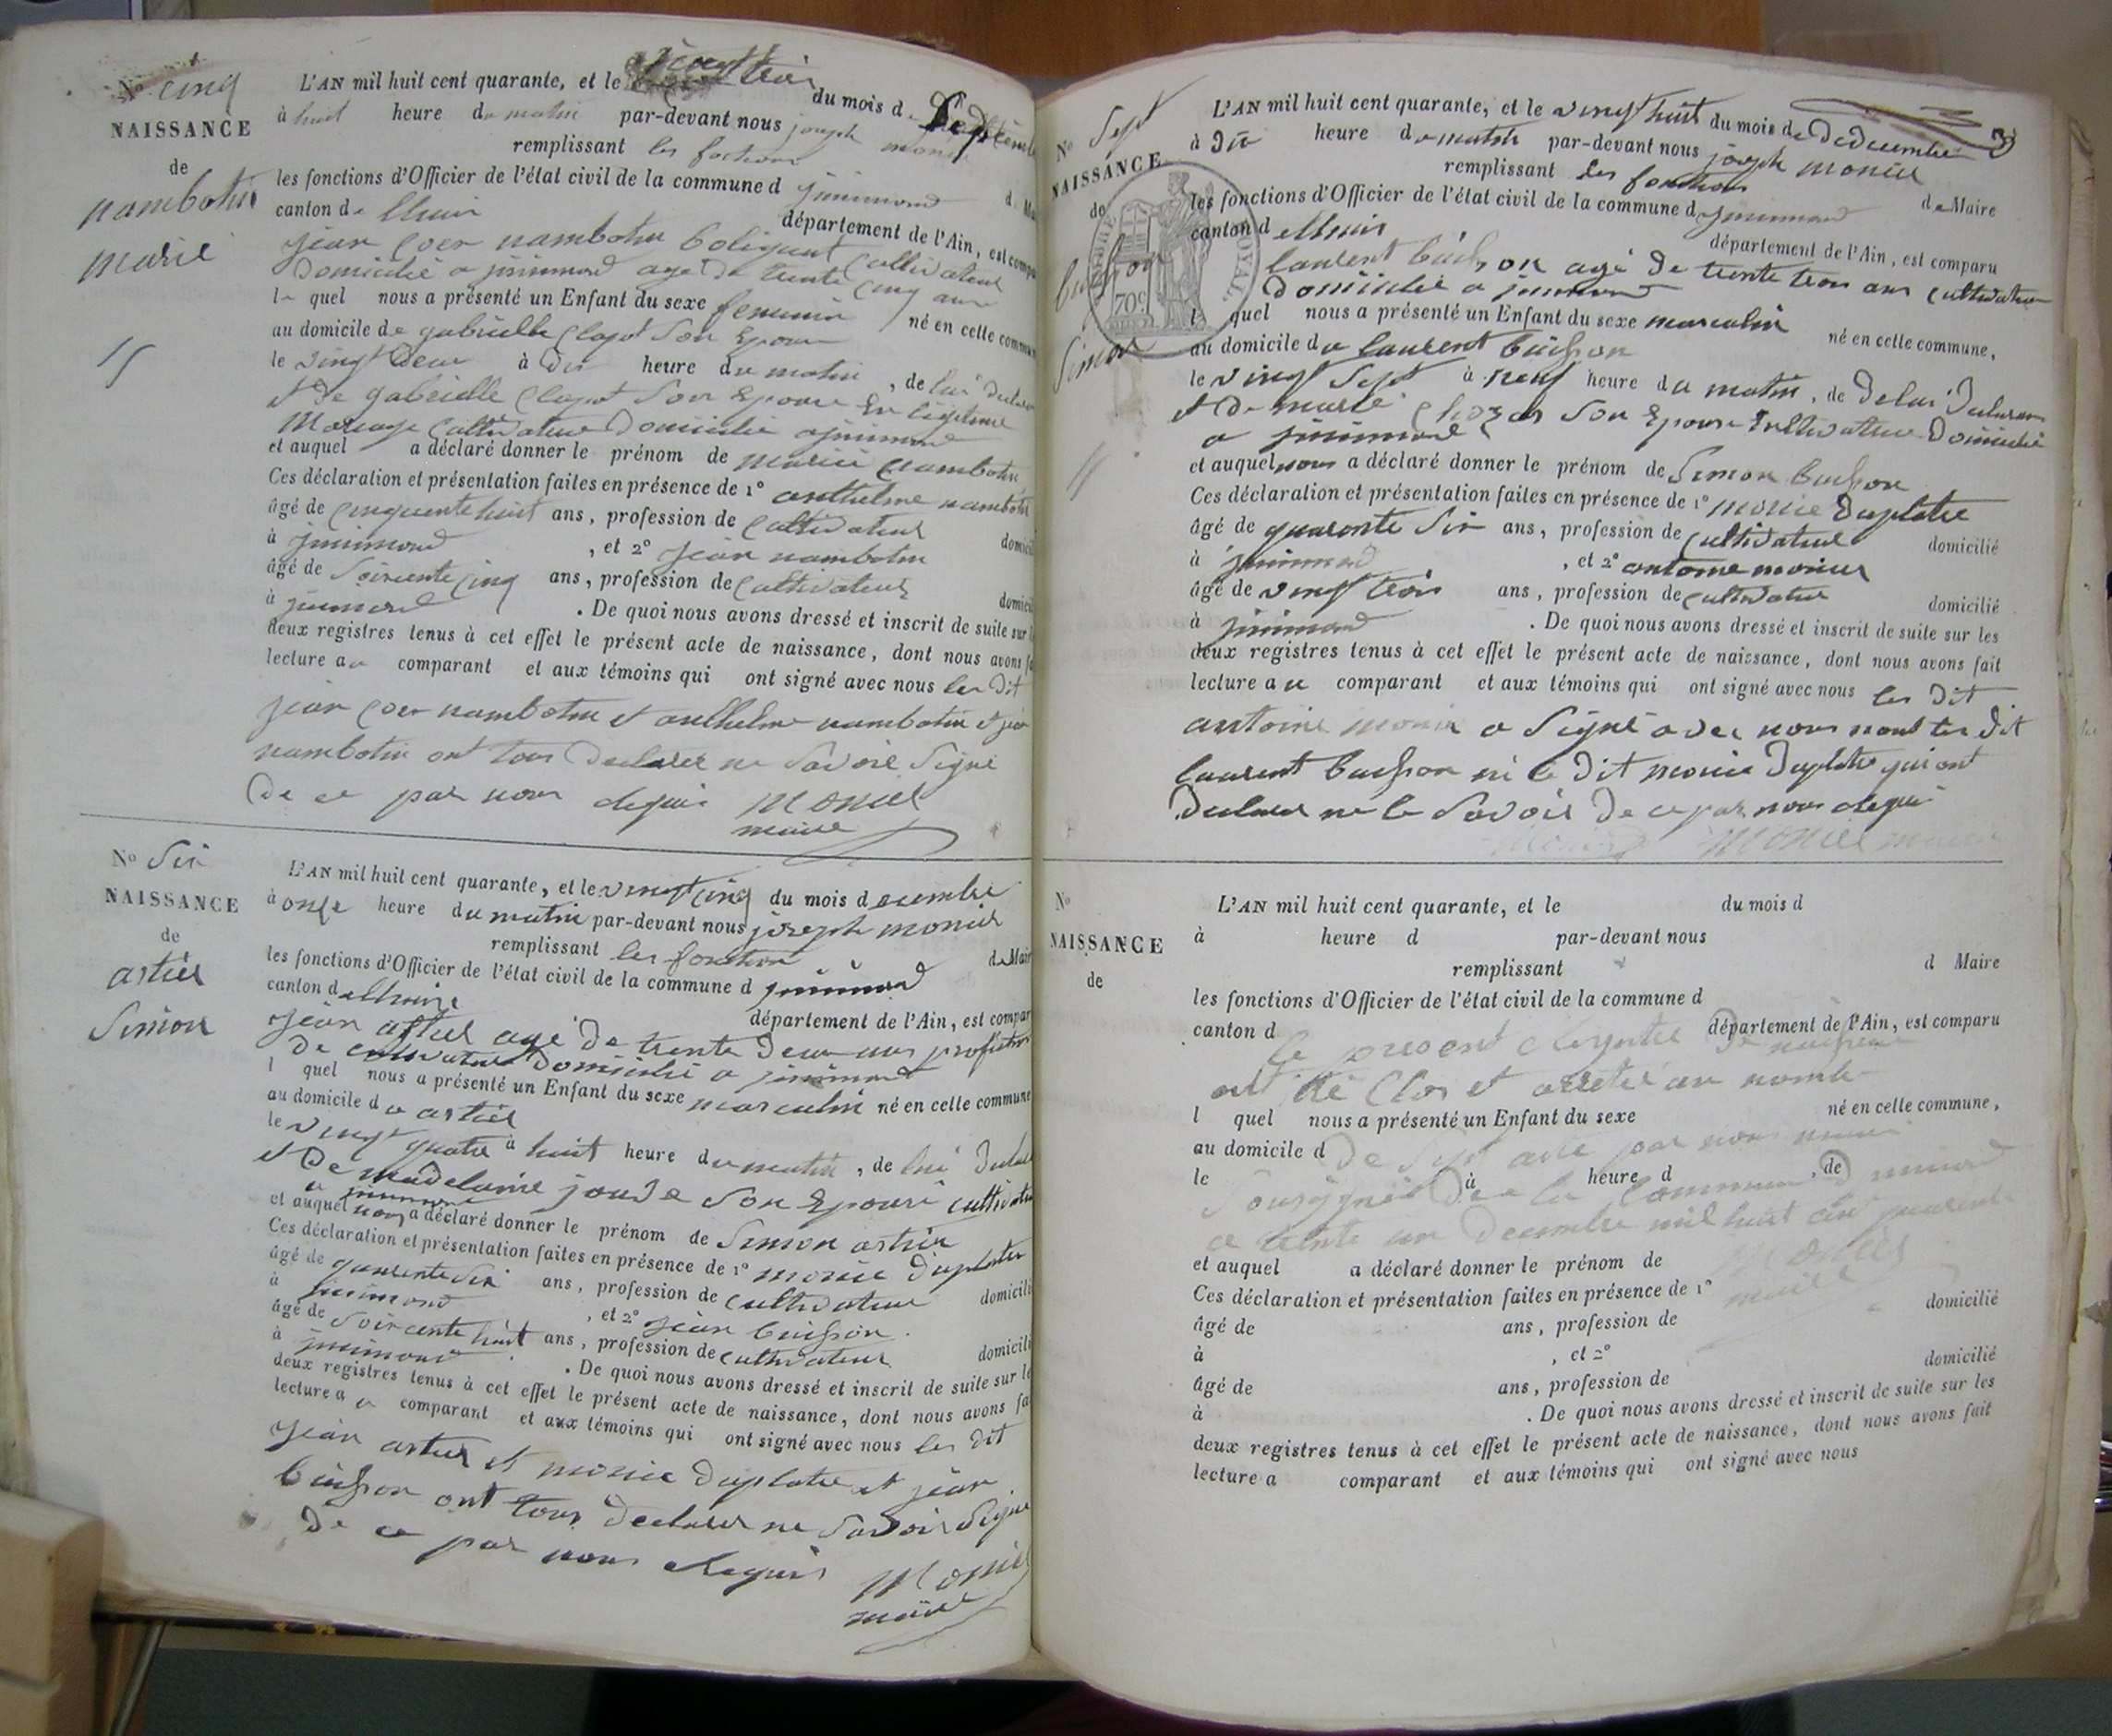 No cinq
NAISSANCE
de
nambotin
marie
L'AN mil huit cent quarante, et le vingt trois du mois de Septembre
à huit heure du matin par-devant nous joseph monier
remplissant les fonctions
les fonctions d'Officier de l'état civil de la commune d jinimond d Ma
canton de lhuis département de l'Ain, est compa
jean nambotin cultivateur
domicilié a jinimond agé de trente cinq ans
le quel nous a présenté un Enfant du sexe feminin né en celle commun
au domicile de gabrielle son Epouse
le vingt deux à dix heure du matin, de lui
et de gabrielle son Epouse En légitime
Mariage cultivateur Domicilié a jinimond
et auquel a déclaré donner le prénom de marie nambotin
Ces déclaration et présentation faites en présence de 1º anthelme nambotin
âgé de cinquante huit ans, profession de cultivateur domicil
à jinimond, et 2º jean nambotin
âgé de soixente cinq ans, profession de cultivateur domicil
à jinimond. De quoi nous avons dressé et inscrit de suite sur l
deux registres tenus à cet effet le présent acte de naissance, dont nous avons fa
lecture au comparant et aux témoins qui ont signé avec nous les dit
jean nambotin et anthelme nambotin et jean
nambotin ont tous declarer ne savoir signé
De ce par nous requis monier
maire
No Six
NAISSANCE
de
artier
Simon
L'AN mil huit cent quarante, et le vingt cinq du mois d ecembre
à onse heure du matin par-devant nous joseph monier
remplissant les fonction de Mair
les fonctions d'Officier de l'état civil de la commune d jinimond
canton de lhuis département de l'Ain, est compar
jean artier agé de trente deux ans profession
de cultivateur domicilié a jinimond
l quel nous a présenté un Enfant du sexe masculin né en celle commune
au domicile du artier
le vingt quatre à huit heure du matin, de lui
et De madelaine son Epouse cultivateur
a jinimond
et auquel nous a déclaré donner le prénom de Simon artier
Ces déclaration et présentation faites en présence de 1º Duplatre
âgé de quarente six ans, profession de cultivateur domicili
à jinimond, et 2º jean buisson
âgé de soixcente huit ans, profession de cultivateur domicili
à jinimond. De quoi nous avons dressé et inscrit de suite sur le
deux registres tenus à cet effet le présent acte de naissance, dont nous avons fa
lecture a u comparant et aux témoins qui ont signé avec nous les dit
jean artier et Duplatre et jean
buisson ont tous declarer ne savoir signe
De ce par nous requis monier
maire
No Sept
NAISSANCE
de
buisson
Simon
TIMBRE ROYAL
70c
L'AN mil huit cent quarante, et le vingt huit du mois de Dedecembre
à Dix heure du matin par-devant nous joseph monier
remplissant les fonctions de Maire
les fonctions d'Officier de l'état civil de la commune d jinimond
canton d elhuis département de l'Ain, est comparu
laurent buisson agé de trente trois ans cultivateur
domicilié a jinimond
l quel nous a présenté un Enfant du sexe masculin né en celle commune,
au domicile du laurent buisson
le vingt sept à neuf heure du matin, de Delui
et De marie son Epouse cultivateur Domicilié
a jinimond
et auquel nous a déclaré donner le prénom de Simon buisson
Ces déclaration et présentation faites en présence de 1º Duplatre
âgé de quarente six ans, profession de cultivateur domicilié
à jinimond, et 2º antoine monier
âgé de vingt trois ans, profession de cultivateur domicilié
à jinimond. De quoi nous avons dressé et inscrit de suite sur les
deux registres tenus à cet effet le présent acte de naissance, dont nous avons fait
lecture a u comparant et aux témoins qui ont signé avec nous les dit
antoine monier a Signé avec nous les dit
laurent buisson ni le dit Duplatre qui ont
Declarer ne le Savoir De ce par nous requi
monier monier maire
No
NAISSANCE
de
L'AN mil huit cent quarante, et le du mois d
à heure d par-devant nous
remplissant d Maire
les fonctions d'Officier de l'état civil de la commune d
canton d département de l'Ain, est comparu
le present registre de naissance
ont été Clos et arreter au nombre
l quel nous a présenté un Enfant du sexe né en celle commune,
au domicile d
De Sept acte par nous maire
le à heure d, de
Sousigner De la Commune
ce trente un Decembre mil huit cent quarente
et auquel a déclaré donner le prénom de
monier
Ces déclaration et présentation faites en présence de 1º
maire
âgé de ans, profession de domicilié
à, et 2º
âgé de ans, profession de domicilié
à. De quoi nous avons dressé et inscrit de suite sur les
deux registres tenus à cet effet le présent acte de naissance, dont nous avons fait
lecture a comparant et aux témoins qui ont signé avec nous